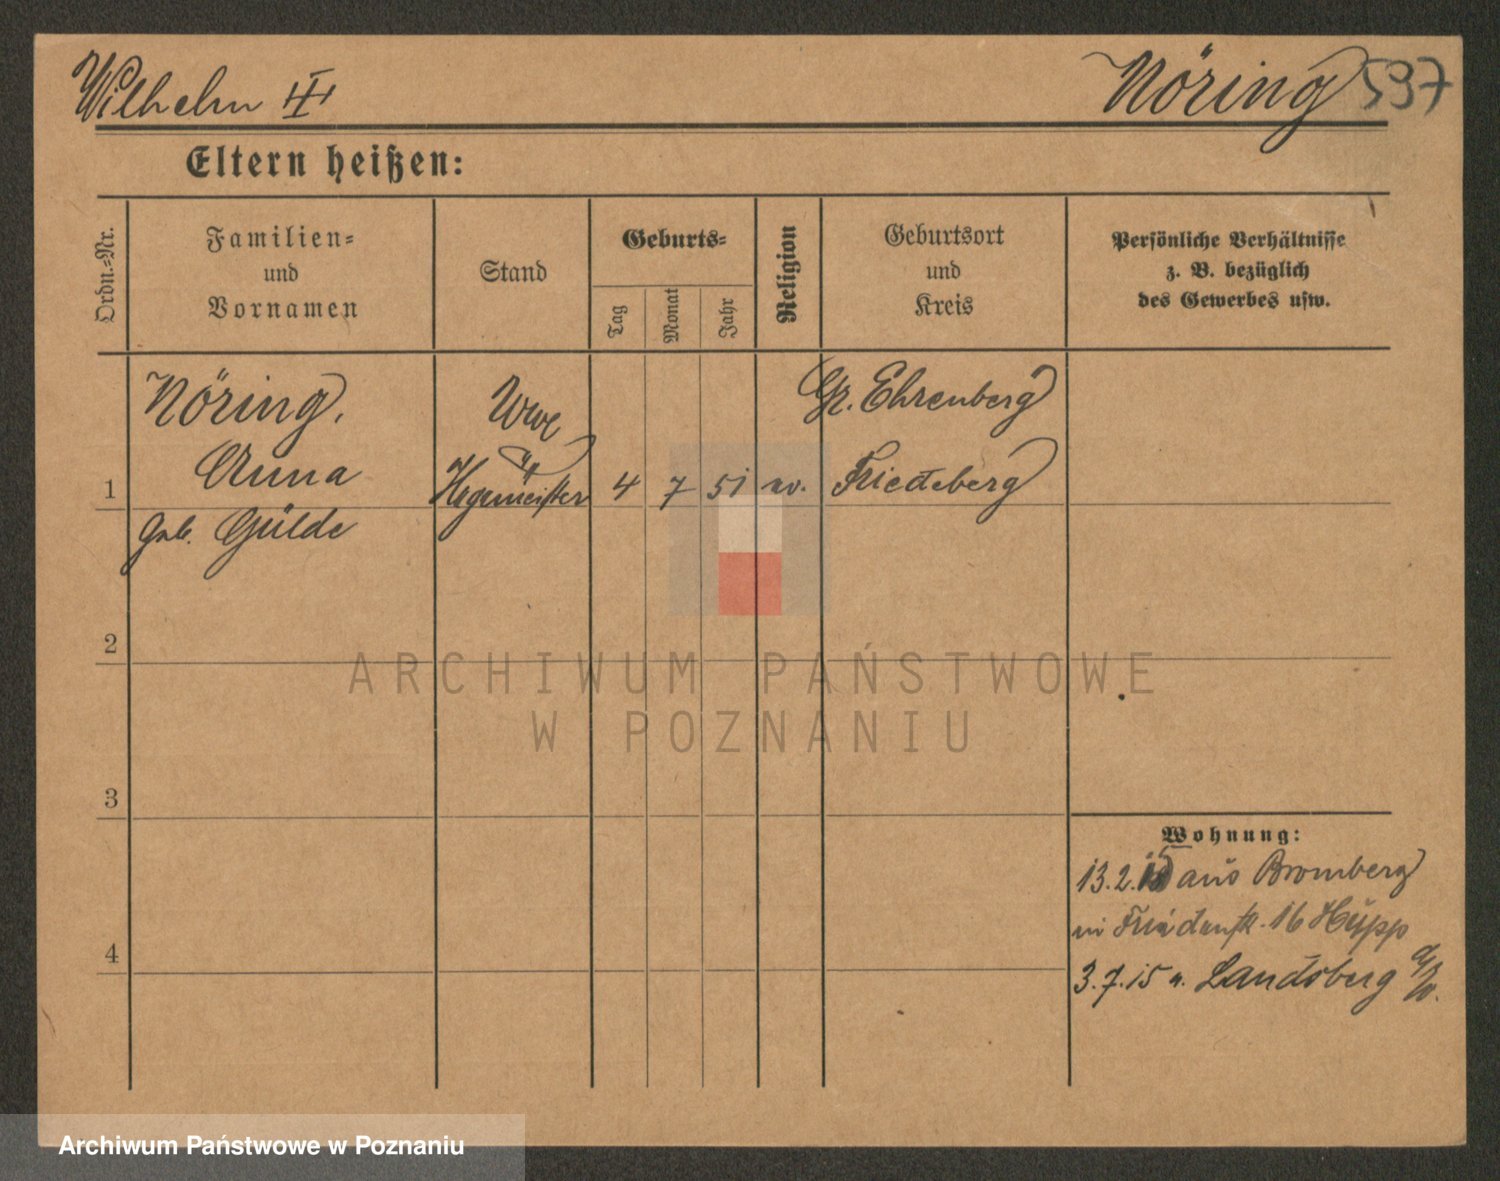 Wilhelm III
Nöring 597
Eltern heißen:
Ordn.-Nr.
Familien=
und
Vornamen
Stand
Geburts=
Tag
Monat
Jahr
Religion
Geburtsort
und
Kreis
Persönliche Verhältnisse
z. B. bezüglich
des Gewerbes usw.
Nöring, Wwe Gr. Ehrenberg
Anna
1 Hegemeister 4 7 51 ev. Friedeberg
geb. Gülde
2
3
4
Wohnung:
13.2.15 aus Bromberg
16 Hüpp
3.7.15 n. Landsberg a/W.
ARCHIWUM PAŃSTWOWE
W POZNANIU
Archiwum Państwowe w Poznaniu